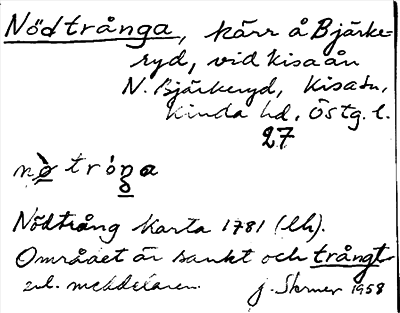 Nödtrånga, kärr å Bjärke=
ryd, vid Kisaån
N. Bjärkeryd, Kisa sn,
Kinda hd, Östg. l.
27
nø̀ tróŋa
Nödtrång Karta 1781 (lh).
Området är sankt och trångt
enl. meddelaren. J. Skoner 1958